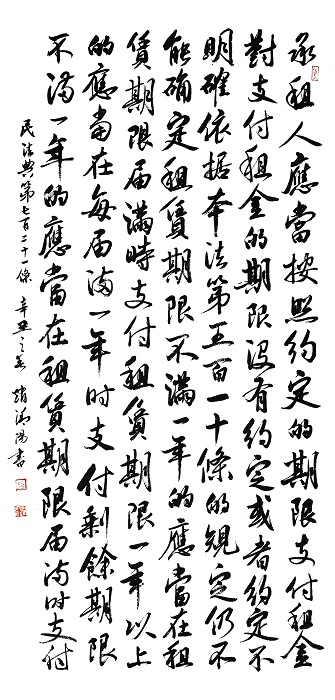 承租人應當按照約定的期限支付租金
對支付租金的期限没有約定或者約定不
明確依据本法第五百一十條的規定仍不
能确定租賃期限不滿一年的應當在租
賃期限届滿時支付賃期限一年以上
的應當在每届满一年时支付剩餘期限
不满一年的應當在租賃期限届满时支付
民法典第七百二十一條 辛丑之春 趙書